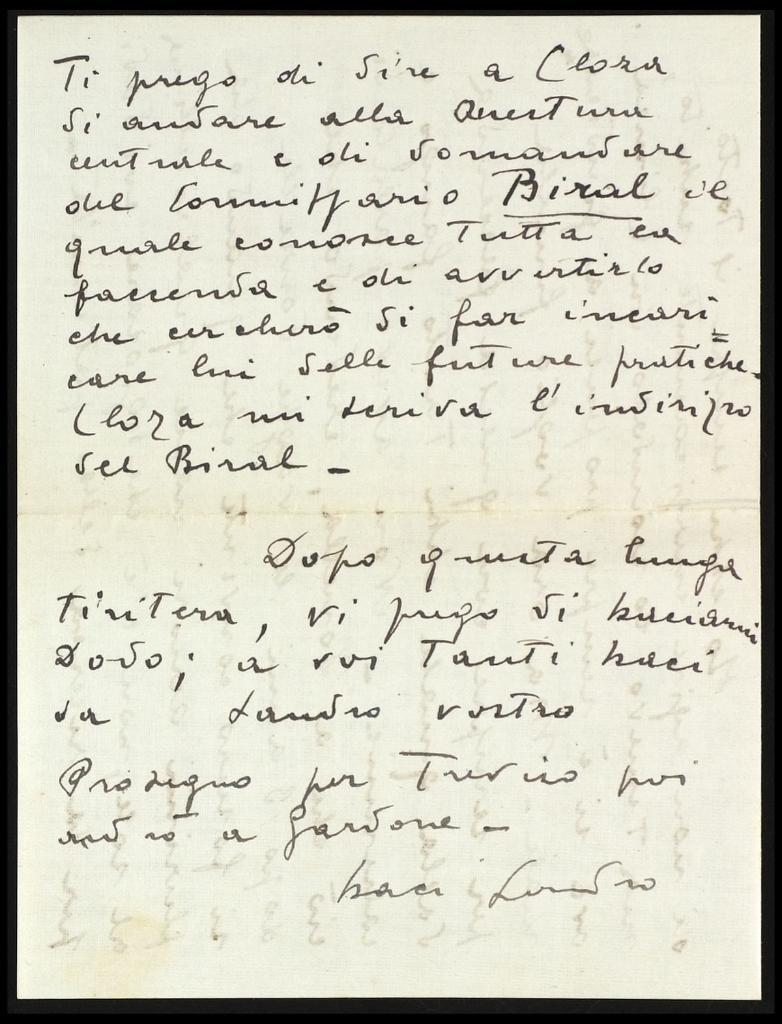 Ti prego di dire a Cloza
di andare alla Questura
centrale e di domandare
del Commissario Biral il
quale conosce tutta la
faccenda e di avvertirlo
che cercherò di far incari=
care lui delle future pratiche.
Cloza mi scriva l'indirizzo
del Biral –
Dopo questa lunga
tiritera, vi prego di baciarmi
Dodo; a voi tanti baci
da Sandro vostro
Proseguo per Treviso poi
andrò a Gardone –
baci Sandro